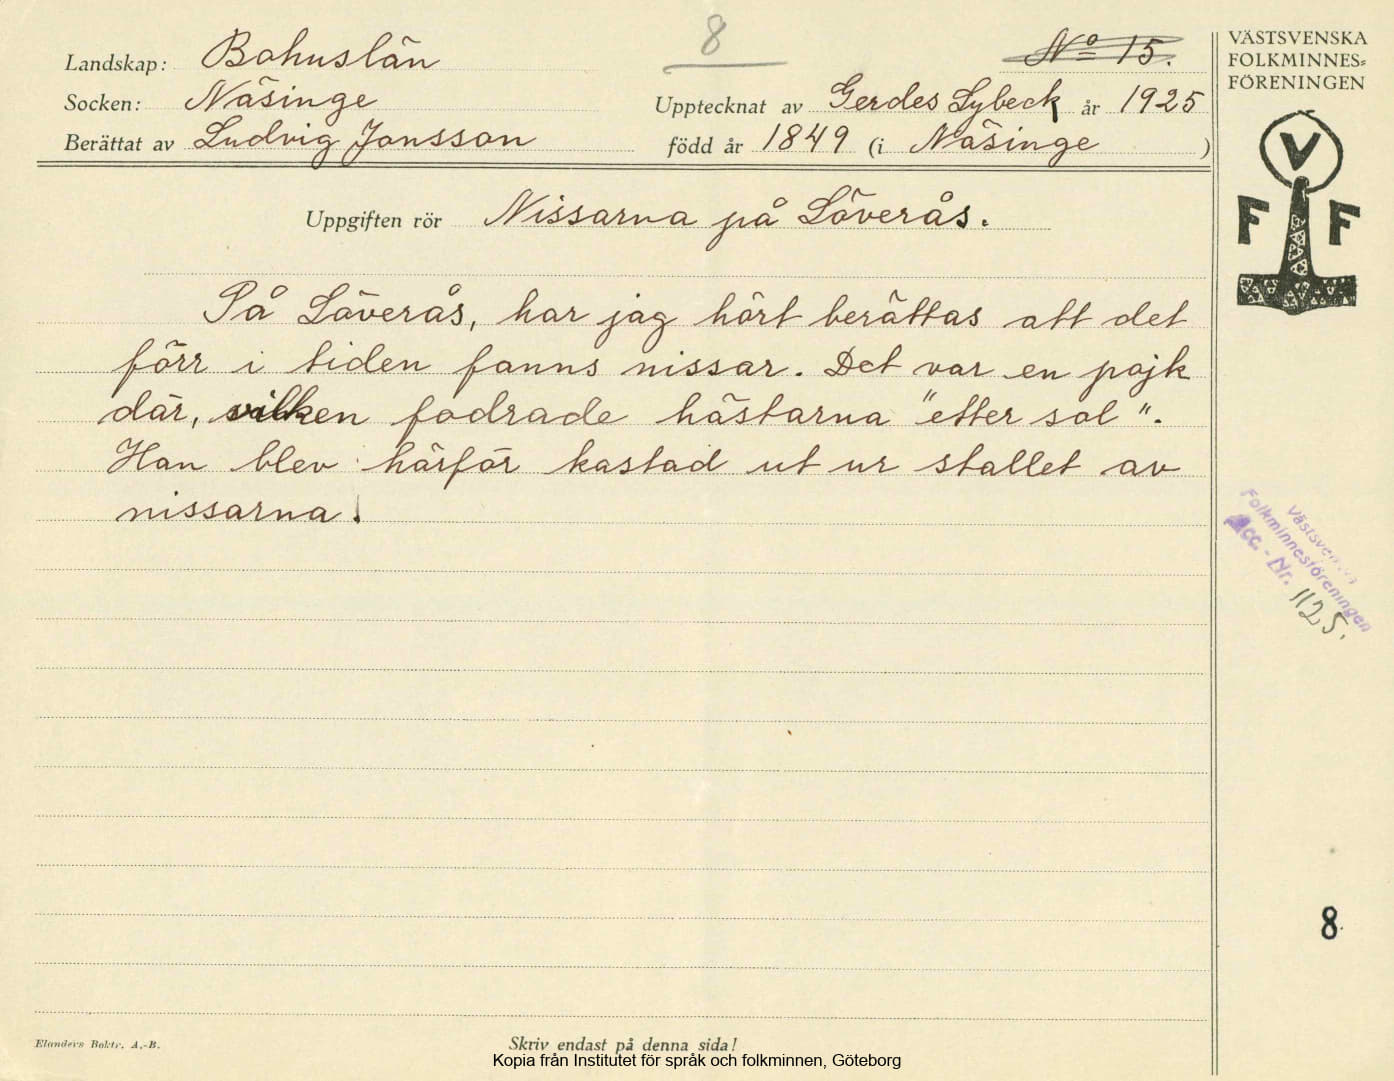 8
Nº 15.
VÄSTSVENSKA
FOLKMINNES=
FÖRENINGEN
Landskap: Bohuslän
Socken: Näsinge
Upptecknat av Gerdes Lybeck år 1925
Berättat av Ludvig Jonsson
född år 1849 (i Näsinge )
V
F F
Uppgiften rör Nissarna på Löverås.
På Löverås, har jag hört berättas att det
förr i tiden fanns nissar. Det var en pojk
där, vilken fodrade hästarna "etter sol".
Han blev härför kastad ut ur stallet av
nissarna.
Västsvenska
Folkminnesföreningen
Acc.-Nr. 1125.
8
Elanders Boktr. A.-B.
Skriv endast på denna sida!
Kopia från Institutet för språk och folkminnen, Göteborg